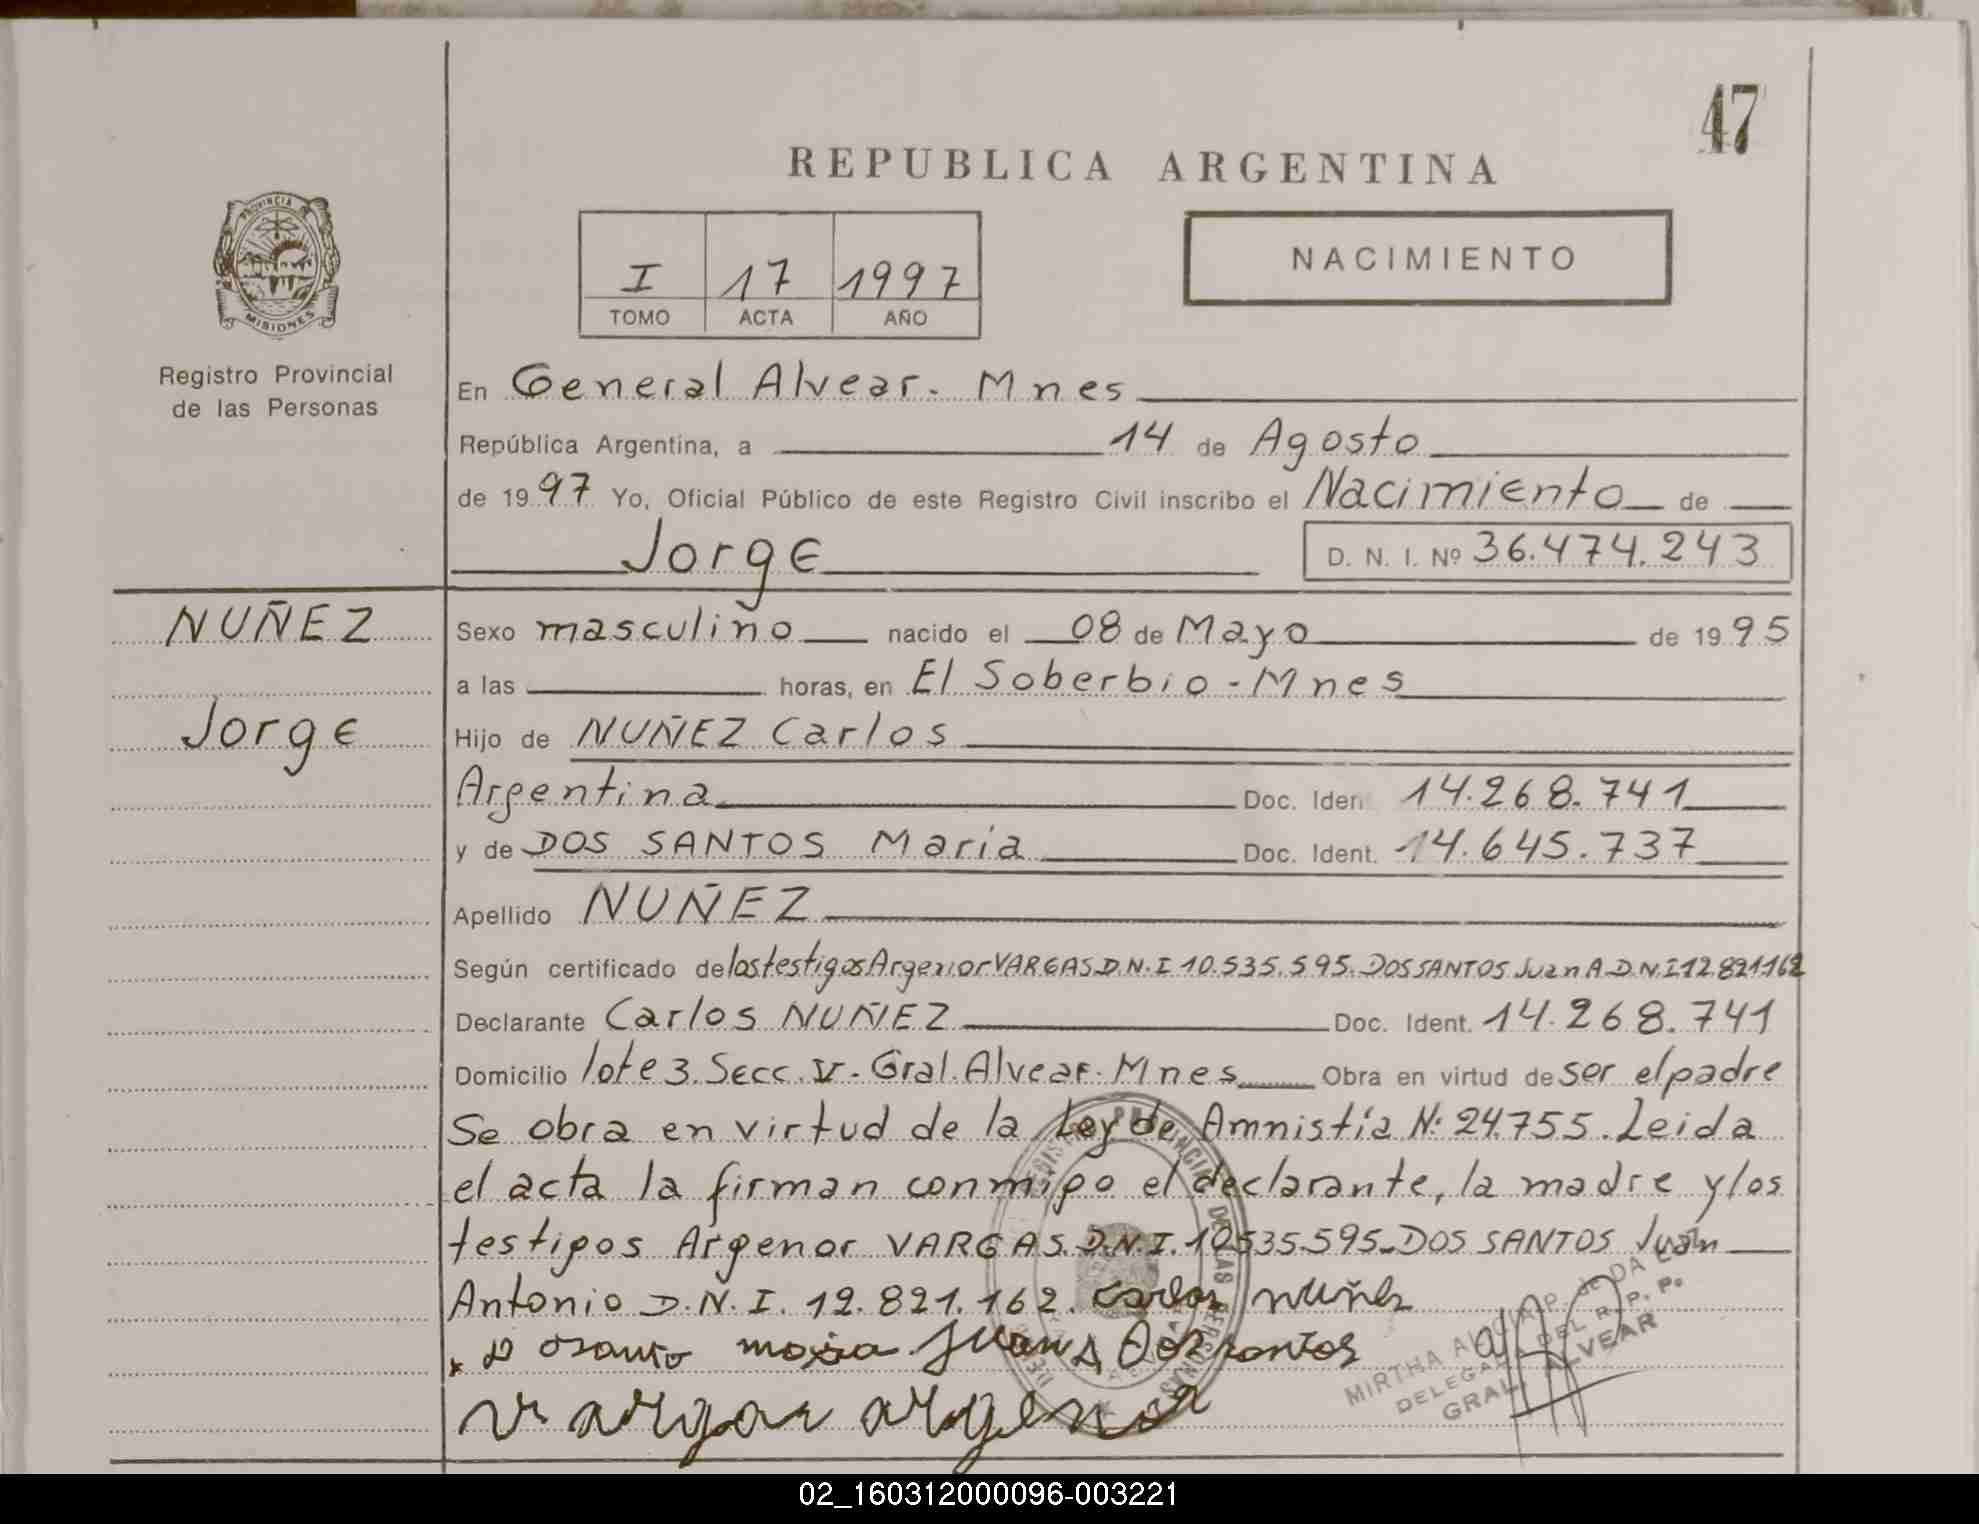 47
REPUBLICA ARGENTINA
PROVINCIA
MISIONES
Registro Provincial
de las Personas
I 17 1997
TOMO ACTA AÑO
NACIMIENTO
En General Alvear. Mnes
República Argentina, a 14 de Agosto
de 19 97 Yo, Oficial Público de este Registro Civil inscribo el Nacimiento de
Jorge D. N. I. Nº 36.474.243
NUÑEZ
Jorge
Sexo masculino nacido el 08 de Mayo de 19 95
a las horas, en El Soberbio - Mnes
Hijo de NUÑEZ Carlos
Argentina Doc. Iden 14.268.741
y de DOS SANTOS Maria Doc. Ident. 14.645.737
Apellido NUÑEZ
Según certificado de los testigos Argenor VARGAS D.N.I 10.535.595. DOS SANTOS Juan A D.N.I 12.821.162
Declarante Carlos NUÑEZ Doc. Ident. 14.268.741
Domicilio lote 3. Secc. V - Gral. Alvear. Mnes Obra en virtud de ser el padre
Se obra en virtud de la Ley de Amnistía N: 24.755. Leida
el acta la firman conmigo el declarante, la madre y los
testigos Argenor VARGAS. D.N.I. 10.535.595. DOS SANTOS Juan
Antonio D.N.I. 12.821.162. Carlos Nuñez
maria Juan A Dos santos
vargas argenor
MIRTHA ALICIA P. de DA
DELEGADA DEL R. P. P.
GRAL. ALVEAR
02_160312000096-003221